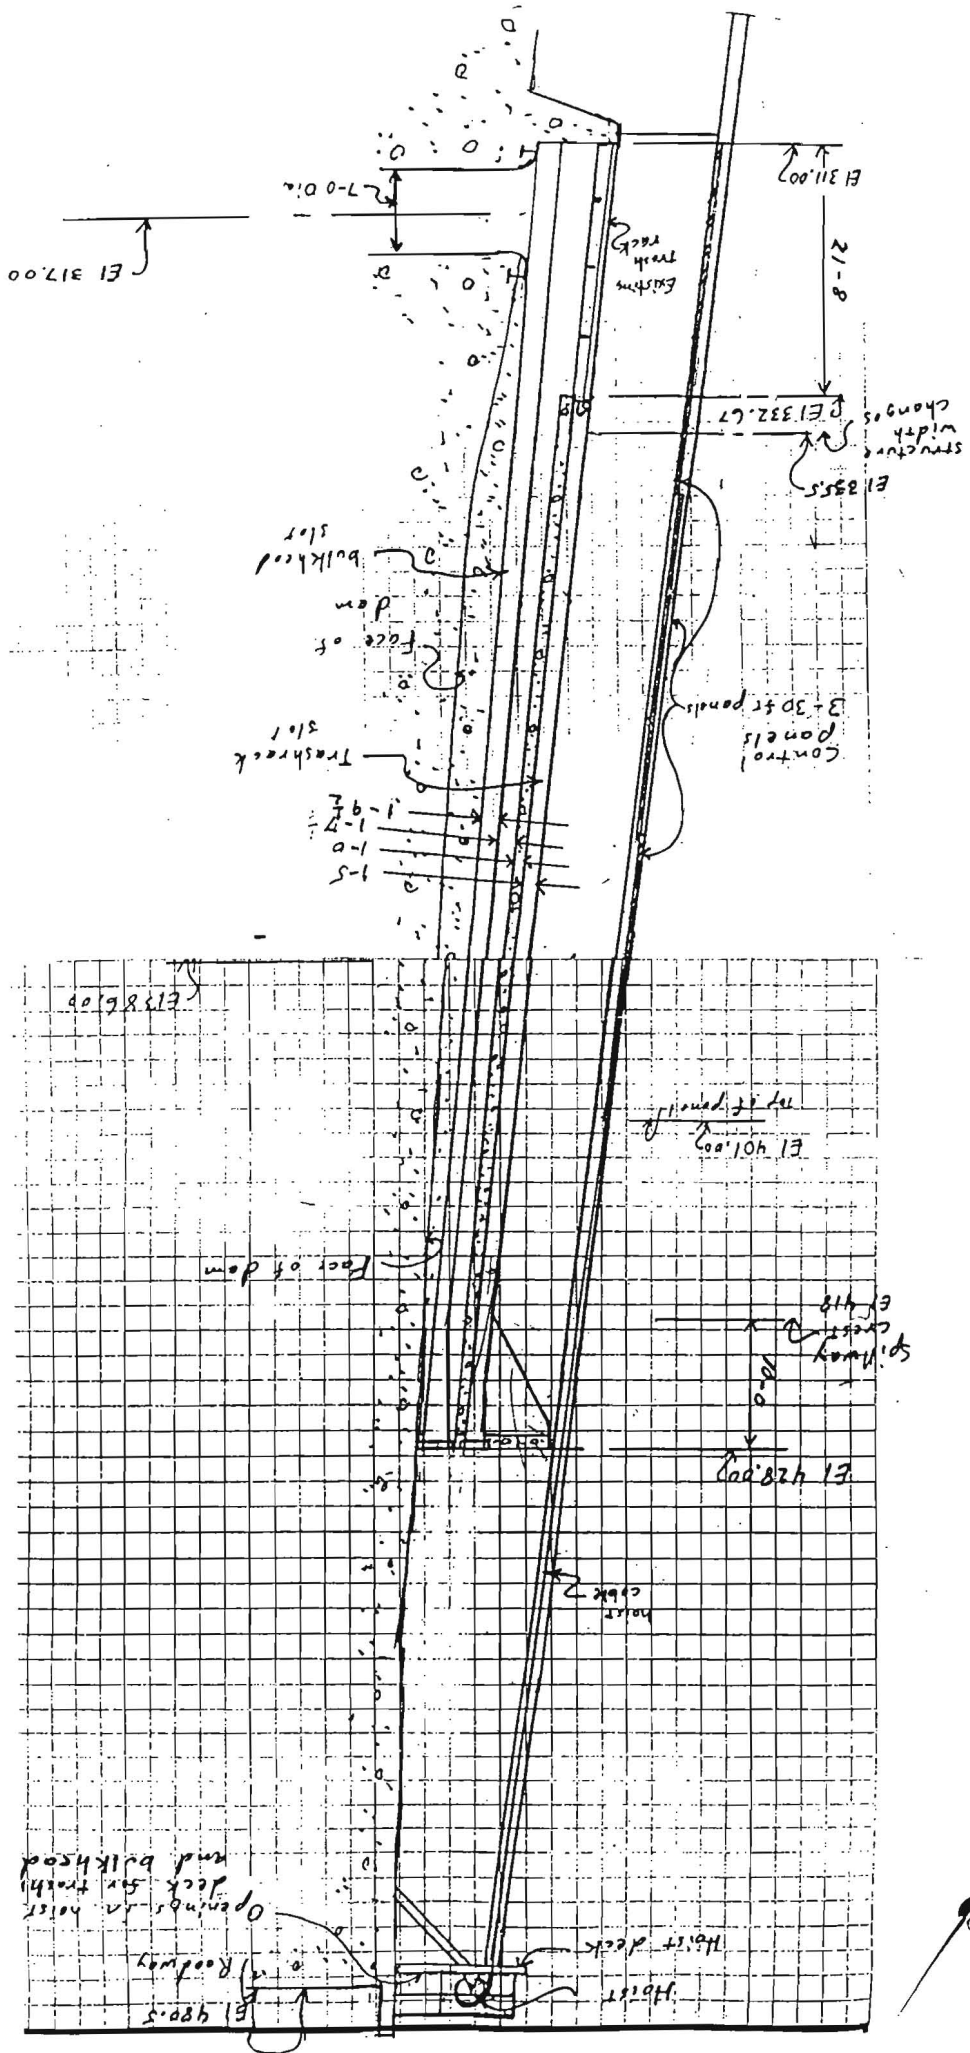 El 480.5
Roadway
Openings in hoist
deck for trash
and bulkhead
Hoist
Hoist deck
hoist
cable
El 428.00
10-0
Spillway
crest
El 418
Face of dam
El 401.00
Top of panel
El 386.00
1-5
1-0
1-7 1/2
1-9 1/2
Trashrack
slot
Control
panels
3-30 ft panels
Face of
dam
bulkhead
slot
El 335.5
structure
width
changes
El 332.67
21-8
Existing
trash
rack
El 317.00
7-0 Dia
El 311.00